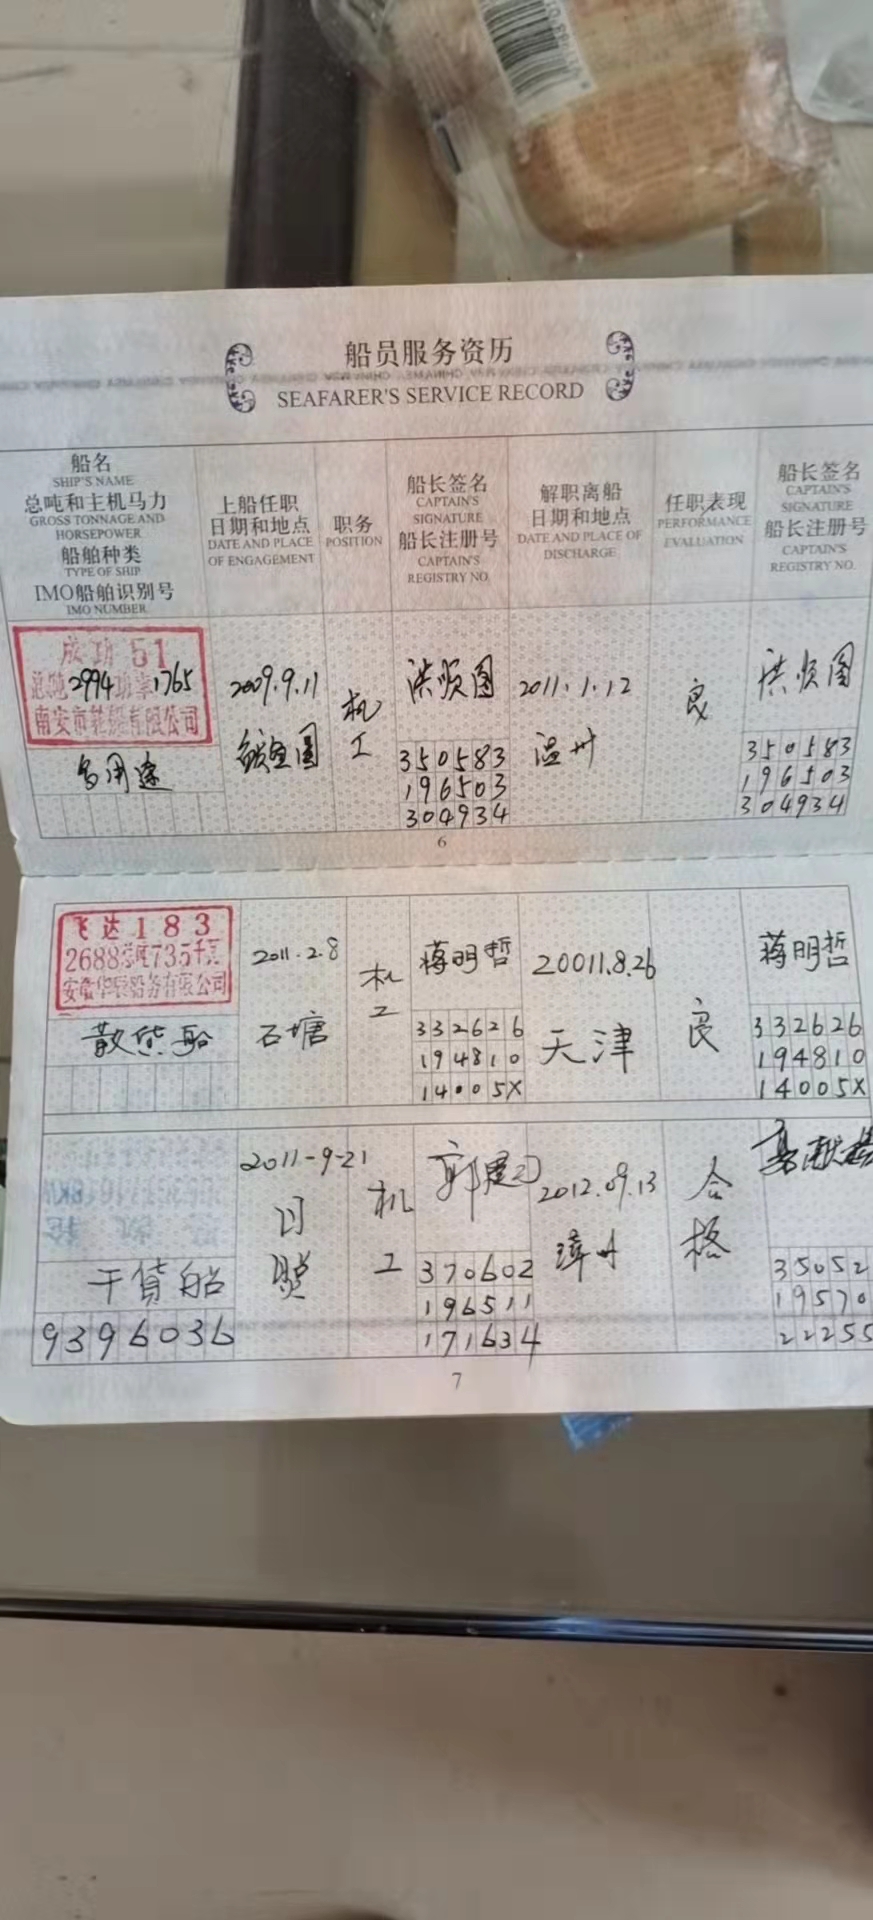 船员服务资历
SEAFARER'S SERVICE RECORD
船名
SHIP'S NAME
总吨和主机马力
GROSS TONNAGE AND
HORSEPOWER
船舶种类
TYPE OF SHIP
IMO船舶识别号
IMO NUMBER
上船任职
日期和地点
DATE AND PLACE
OF ENGAGEMENT
职务
POSITION
船长签名
CAPTAIN'S
SIGNATURE
船长注册号
CAPTAIN'S
REGISTRY NO.
解职离船
日期和地点
DATE AND PLACE OF
DISCHARGE
任职表现
PERFORMANCE
EVALUATION
船长签名
CAPTAIN'S
SIGNATURE
船长注册号
CAPTAIN'S
REGISTRY NO.
成功 51
总吨2994功率1765
南安市轮船有限公司
多用途
2009.9.11
机工
洪顺图
350583
196503
304934
2011.1.12
温州
良
洪顺图
350583
196503
304934
6
飞达183
2688总吨735千瓦
船务有限公司
散货船
2011.2.8
石塘
机工
蒋明哲
332626
194810
14005X
20011.8.26
天津
良
蒋明哲
332626
194810
14005X
干货船
9396036
2011-9-21
日照
机工
郭
370602
196511
171634
2012.09.13
漳州
合格
35052
19570
22255
7